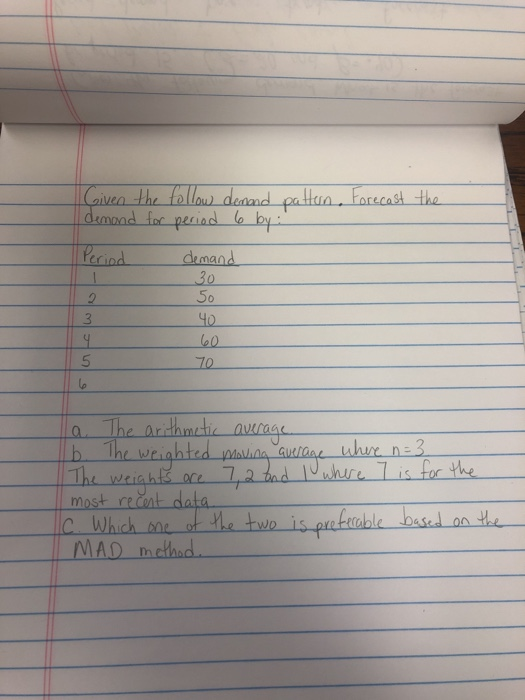 Given the follow demand pattern. Forecast the
demand for period 6 by:
Period demand
1 30
2 50
3 40
4 60
5 70
6
a. The arithmetic average
b. The weighted moving average where n=3
The weights are 7, 2 and 1 where 7 is for the
most recent data
C. Which one of the two is preferable based on the
MAD method.